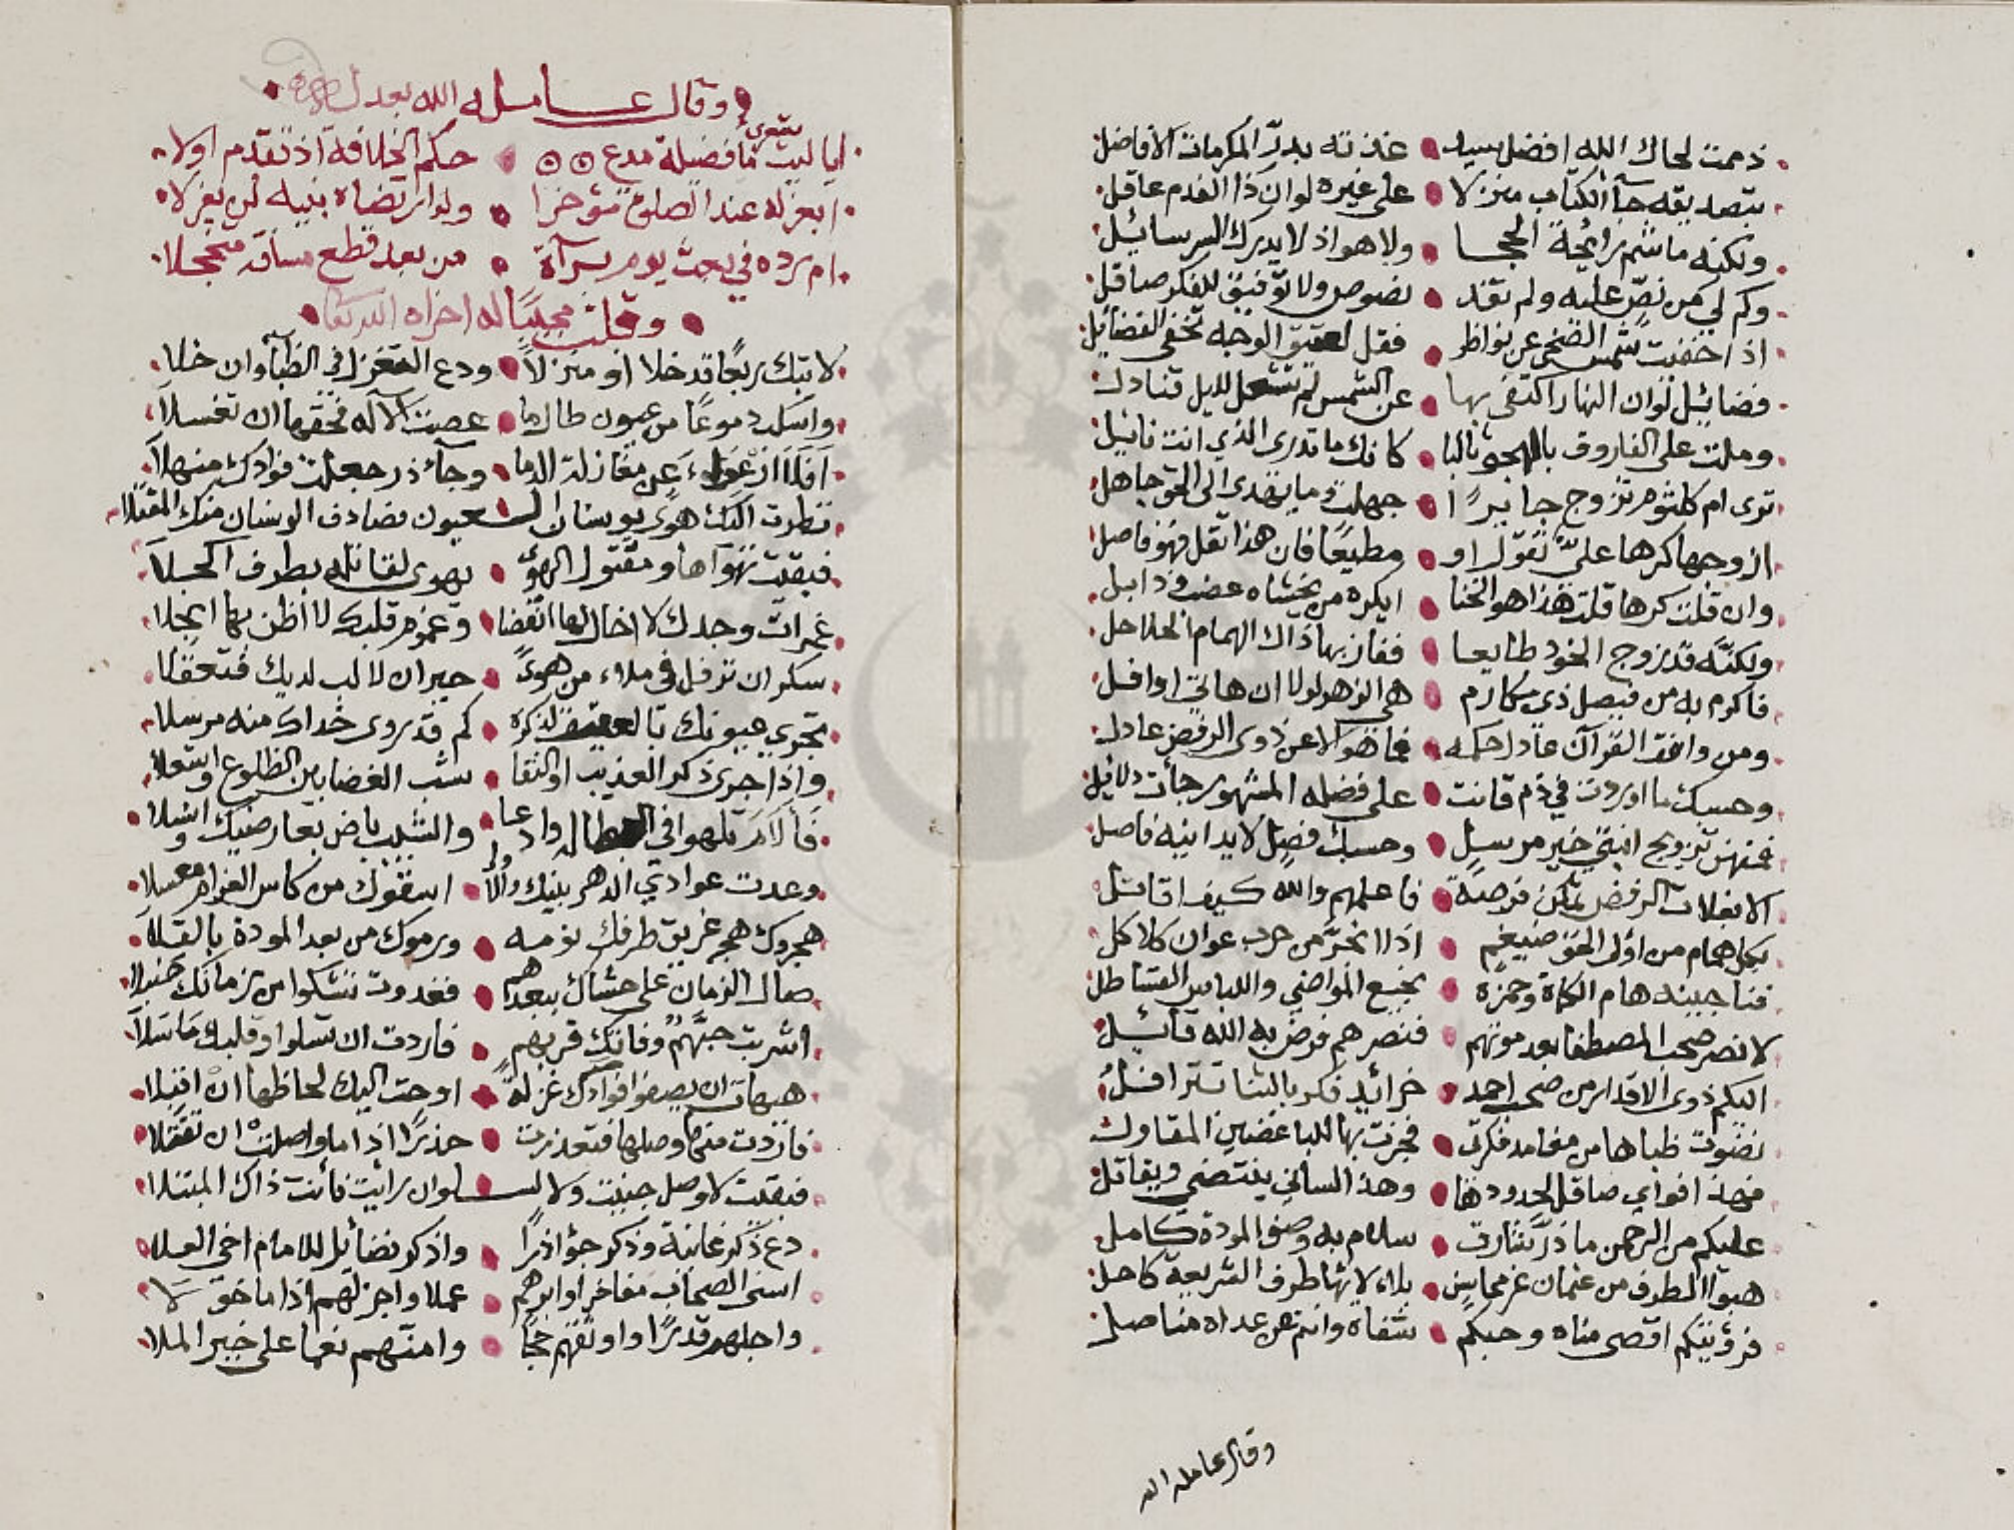 ذممت لحاك الله افضل سيد غذته بدرّ المكرمات الافاضل
بتصديقه جآ الكتاب منزلا على غيره لو ان ذا الفدم عاقل
ولكنه ما شم رائحة الحجا ولا هو اذ لا يدرك السر سائل
وكم لي من نصّ عليه ولم تفد نصوص ولا توفيق للفكر صاقل
اذا خفيت شمس الضحى عن نواظر فقل لعتيق الوجه تخفى الفضائل
فضائل لو ان النهار اكتفى بها عن الشمس لم تشعل لليل قنادل
وملت على الفاروق بالهجو ثالبا كانك ما تدري الذي انت نائل
ترى ام كلثوم تزوج جائرًا جهلت وما يهدى الى الحق جاهل
ازوجها كرها عليّ تقول او مطيعًا فان هذا تقل فهو فاصل
وان قلت كرها قلت هذا هو الخنا ايكره من يخشاه عضب وذابل
ولكنّه قد زوج الخود طايعا ففاز بها ذاك الهمام الحلاحل
فاكرم به من فيصل ذي مكارم هي الزهر لولا ان هاتي اوافل
ومن وافق القرآن عادل حكمه فما هو الا عن ذوي الرفض عادل
وحسبك ما اوردت في ذم قانت على فضله المشهور جأت دلائل
فمنهن تزويج ابنتي خير مرسل وحسبك فضل لا يدانيه فاصل
الا بغلات الرفض تمكن فرصة فاعلمهم والله كيف اقاتل
بكل همام من اولى الحق ضيغم اذا انجرّ من حرب عوان كلاكل
لانصر صحب المصطفا بعد موتهم فنصرهم فرض به الله قائل
اليكم ذوى الاقدار من صحب احمد خرائد فكر بالثنا تترافل
نضوت ظباها من مغامد فكرتي فجزت بها للباغضين المقاول
فهذ افوأي صاقل لحدودها وهذا لساني ينتضي ويقاتل
عليكم من الرحمن ما ذرّ شارق سلام به وصف المودة كامل
فرؤيتكم اقصى مناه وحبكم شفاه وانتم في عداه مناصل
وقال عامله الله
وقال عامله الله بعدله
ايا ليت شعري ما فضيلة مدع حكم الخلافة اذ تقدم اولا
ابعزله عند الصلوة مؤخرا ولو ارتضاه نبيه لن يعزلا
ام رده في بعث يوم برآة من بعد قطع مسافة متجحلا
وقلت مجيبًا له اخزاه الله تعا
لا تبك ربعًا قد خلا او منزلاً ودع التغزل في الظبآ وان خلا
واسكب دموعًا من عيون طالما عصت الاله فحقها ان تغسلا
نظرت اليك هوى بوسنان العيون فصادف الوسنان منك المقتلا
فبقيت تهواها ومقتول الهوى يهوى لقاتله بطرف اكحلا
غمرات وجدك لا اخال لها انقضا وغموم قلبك لا أظن بها انجلا
سكران ترفل في ملاء من هوىً حيران لا لب لديك فتعقلا
تجري عيونك بالعقيق لذكره كم قد روى خداك منه مرسلا
واذا جرى ذكر العذيب او النقا شب الغضا بين الظلوع واشعلا
وعدت عوادي الدهر بينك والأُلا اسقوك من كاس الغرام معسلا
هجروك هجر غريق طرفك نومه ورموك من بعد المودة بالقلا
صال الزمان على حشاك ببعدهم فغدوت تشكوا من زمانك
اشربت حبّهمُ وفاتك قربهم فاردت ان تسلوا وقلبك ما سلا
هيهات ان يصفو فوادك غزلة اوحت اليك لحاظها ان اقبلا
فازددت منها وصلها فتعذرت حذرًا اذا ما واصلت ان تقتلا
فبقيت لا وصل جنيت ولا لسلوان رأيت فأنت ذاك المبتلا
دع ذكر غانية وذكر جؤاذرًا واذكر فضائل للامام اخي العلا
اسنى الصحاب مفاخرا وابرهم عملا واجزلهم اذا ما خولا
واجلهم قدرًا واوثقهم حجًا وامنهم نعما على خير الملا